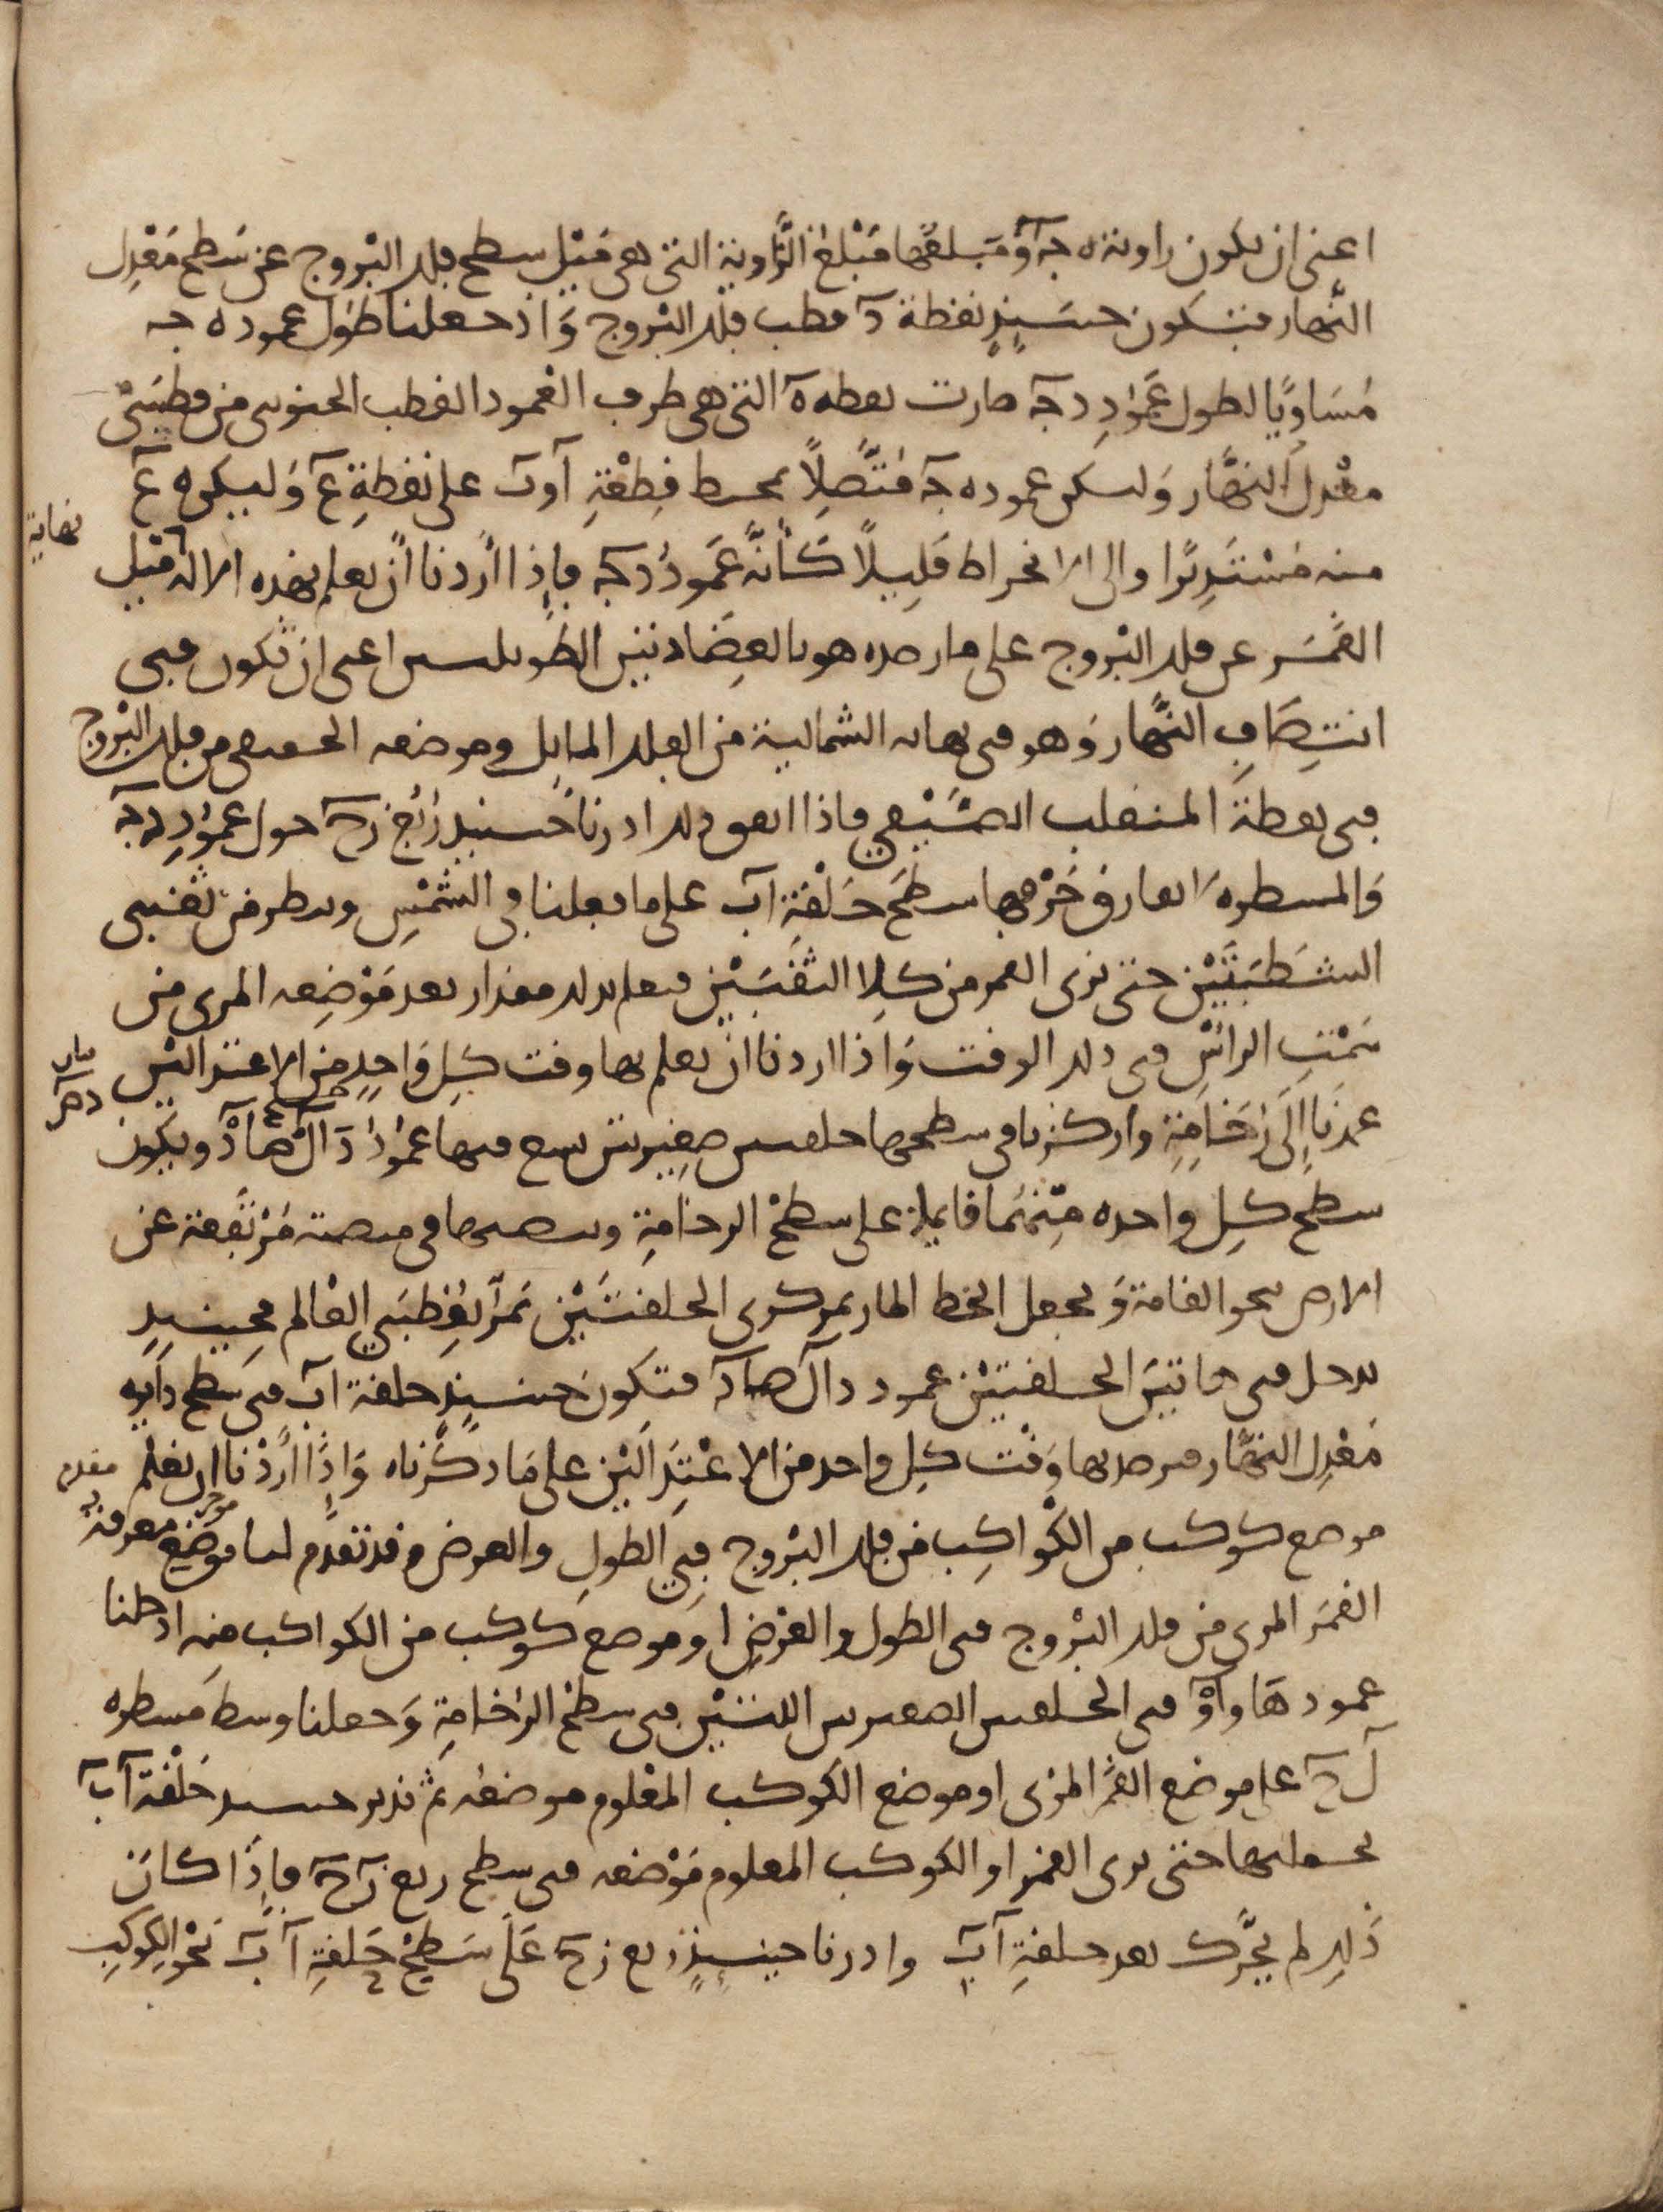 اعني ان يكون زاوية ه جـ و مبلغها مَبْلغ الزَّاوية التي هي مَيْل سطح فلك البُروج عن سَطح مُعَدِل
النَّهار فتكون حينَئِذٍ نقطة د قطب فلك البروج وَاذ جعلنا طول عمود ه جـ
مُسَاوِيًا لطول عَمُودِ د جـ صارت نقطة ه التي هي طرف العمود القطب الجنوبي من قطبَيْ
معْدل النهَّار وَليكن عمود ه جـ مُتَّصِلاً بمحيط قِطْعَةِ ا و ب على نقطةِ ع وَليكن ه ع
منه مُسْتَدِيرًا والى الانخراط قَلِيلاً كَأنَّه عَمودُ د جـ فإذا أردنا أن نعلم بهذه الالة ميل نهاية
القمَر عن فلك البْروج على ما رصده هو بالعِضَادتين الطويلتين اعني ان تكون في
انتِصَافِ النهَّار وَهو في نهايه الشمالية من الفلك المايل وموضعه الحقيقي من فلك البْروج
في نقطةَ المنقلب الصَّيْفِي فاذا اتفق ذلك ادرنا حينيذ رُبْع ز ح حول عمودِ د جـ
وَالمسطرة التي لا تفارق خَرْمها سطحَ حَلْقة اب على ما فعلنا في الشمْسِ وننظر من ثقبي
الشَطبَتَيْن حتى نرى القمر من كِلا الثقبَيْن فنعلم بذلك مقدار بعد مَوْضِعه المري من
سَمْتِ الراسِ في ذلك الوقت وَاذا اردنا ان نعلم بها وقت كل وَاحدٍ من الاعتدالين
عمدْنا إلَى رَخَامةٍ واركزنا في سطحها حلقتين صغِيرتين يسع فيها عمودُ دَال هَا د ويكون
سطح كلِ واحده منهمُا قايما على سطحْ الرخامةِ وننصبها في منصة مُرْتَفِعة عن
الارض نحو القامة وَنجعل الخط المار بمركزي الحلقتَيْن يَمرّ بقطبَي العَالم فحِينيذٍ
ندخل في هاتيَن الحلقتيْن عمود دال ها د فتكون حينيذٍ حلقة اب في سطح دايره
مُعْدِل النهَّار فنرصد بها وَقت كِل واحد من الاعْتِدَالَيْن على مَا ذكرْناه وَاذَا أرَدْنا ان نعْلم
موضع كوكب من الكْواكِب من فلك البْروج فِي الطولِ والعرض وقد تقدم لنا موضِع معرفة
القمَر المري من فلك البْروج في الطول والعَرْضِ او موضع كوكب من الكواكب منه ادخلنا
عمود هَا واوْ في الحلقتين الصغيرتين اللتيْن في سطحْ الرخامةِ وَجعلنا وسط مَسطره
ل ح على موضع القمَر المرْي او موضع الكوكب المعْلوم موضعُه ثم نُدير حينيذ حَلْقة اب
بجملتها حتى نرى القمَر او الكوكب المعلوم مَوْضعه في سطح ربع ز ح فإذَا كانَ
ذَلِك لم يحَّرك بعد حلقةِ اب وادرنا حينيِذٍ ربع ز ح عَلَى سَطحِ حَلقةِ اب نَحْو الكوكبِ